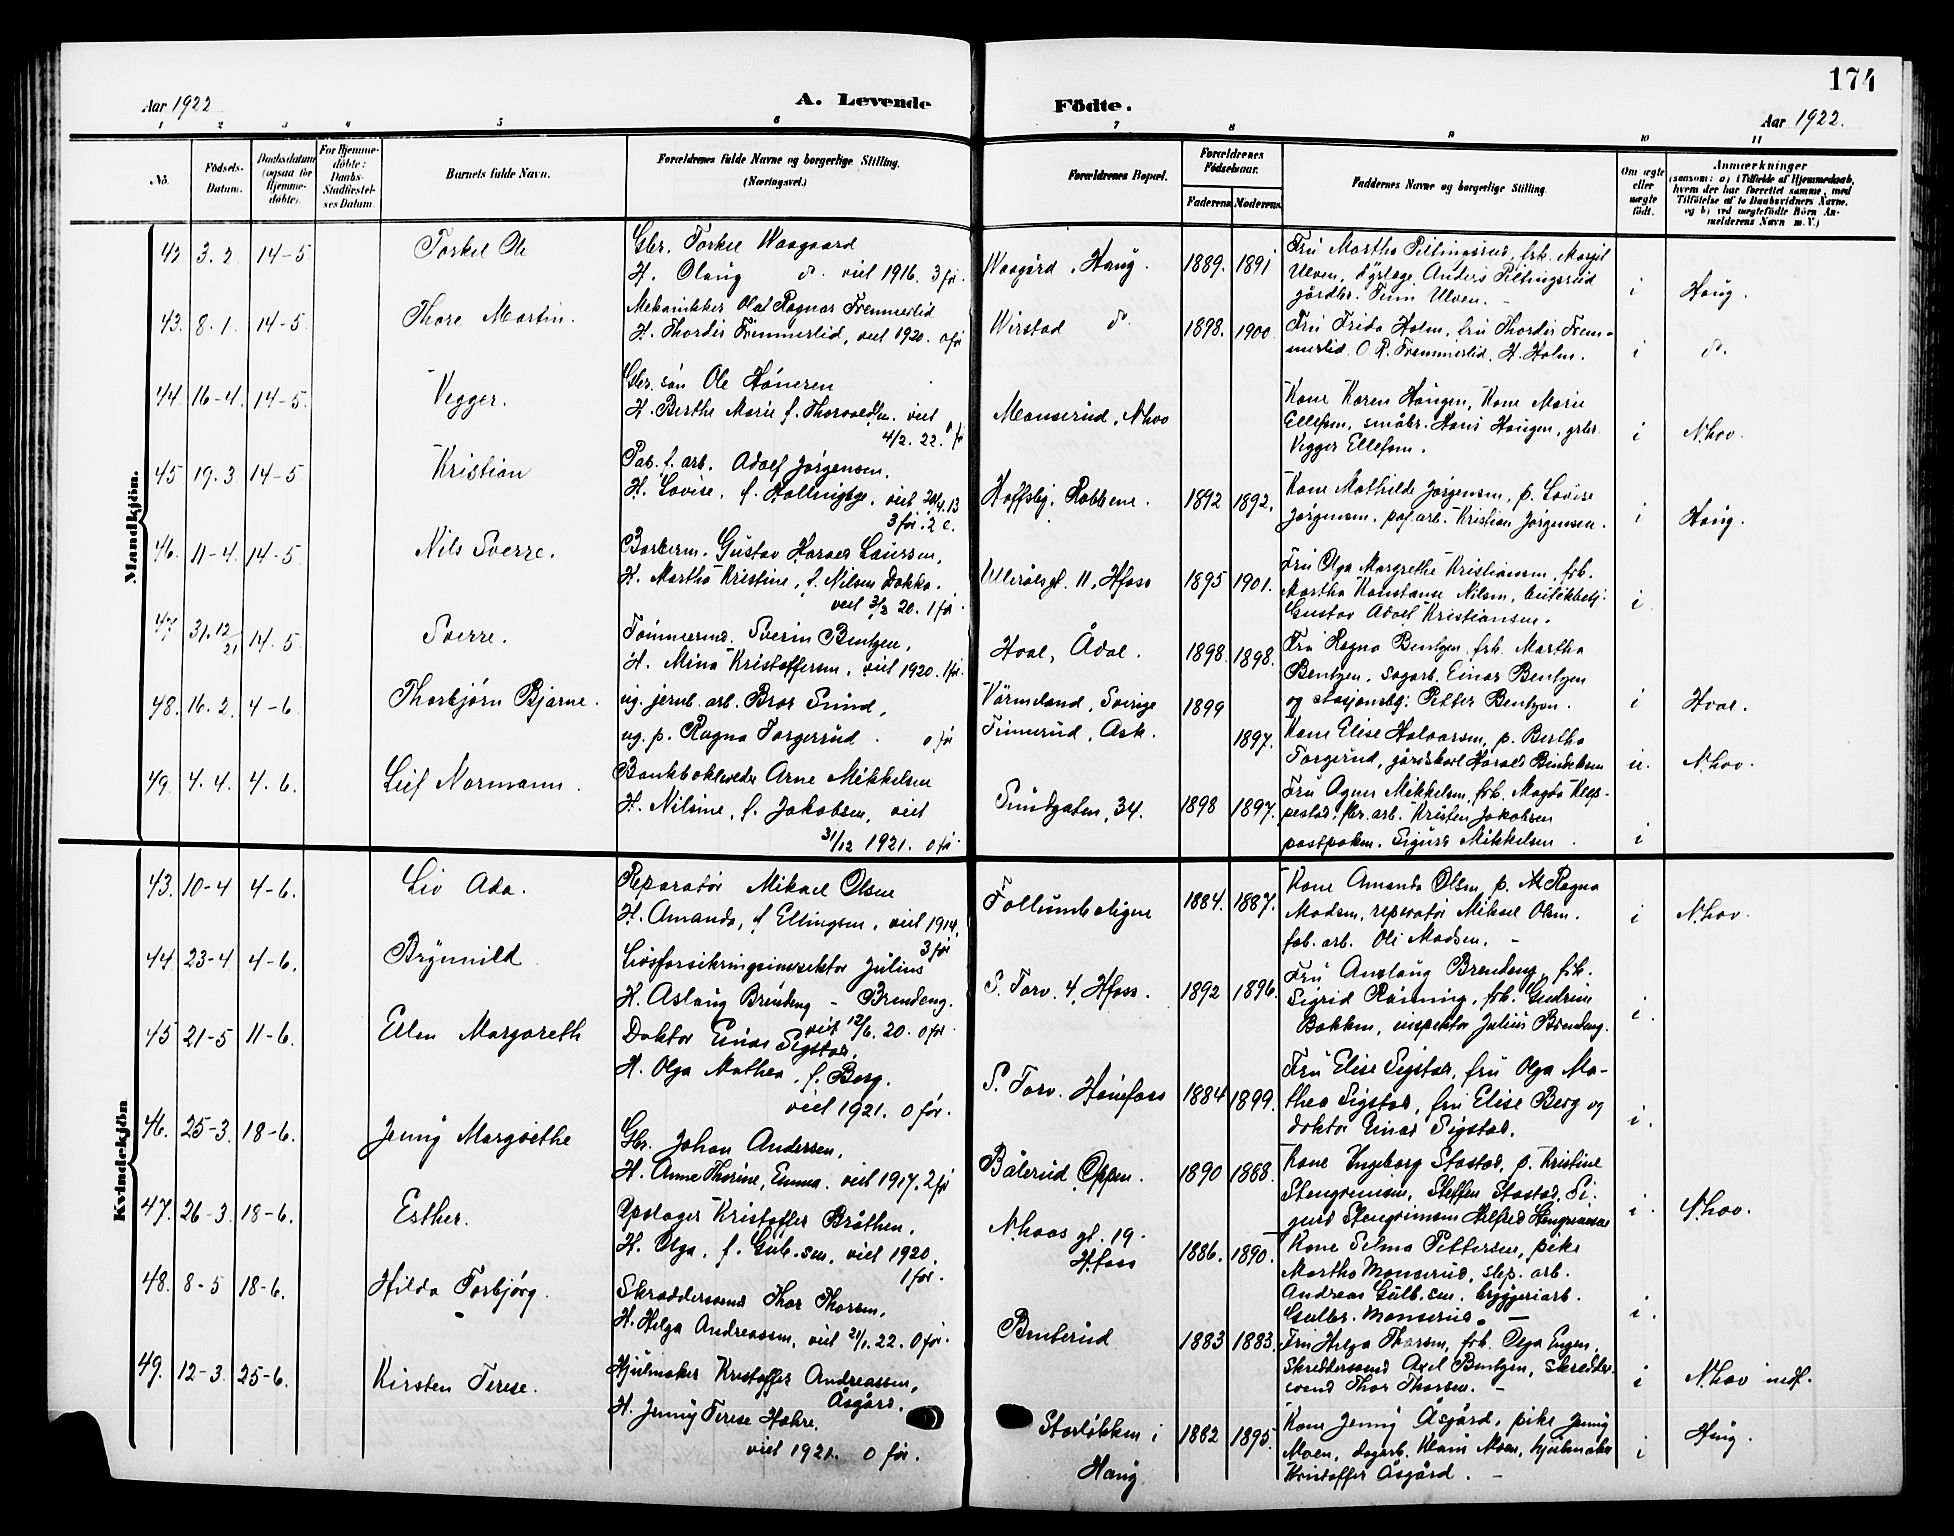 174
Aar 1922
A. Levende
Födte.
Aar 1922.
1 2 3 4 5 6 7 8 9 10 11
No.
Födsels-Datum.
Daabsdatum (ogsaa for Hjemme-döbte).
For Hjemme-döbte: Daabs-Stadfæstel-ses Datum.
Barnets fulde Navn.
Forældrenes fulde Navne og borgerlige Stilling. (Næringsvei.)
Forældrenes Bopæl.
Forældrenes Födselsaar.
Faderens Moderens
Faddernes Navne og borgerlige Stilling.
Om ægte eller uægte födt.
Anmærkninger
(saasom: a) i Tilfælde af Hjemmedaab,
hvem der har forrettet samme, med
Tilföielse af to Daabsvidners Navne,
og b) ved uægtefödte Börn An-
melderens Navn m. V.)
Mandkjön.
42 3. 2. 14-5 Torkel Ole
Gbr. Torkel Waagaard
H. Olaug do. viet 1916. 3 før.
Waagård, Haug. 1889. 1891
Fru Martha Piltingsrud, frk. Margit
Ulven, dyrlæge Anders Piltingsrud
gårdbr. Finn Ulven. -
i Haug.
43. 8. 1. 14-5. Thore Martin.
Mekanikker Olaf Ragnar Fremmerlid
H. Thordis Fremmerlid, viet 1920. 0 før
Wirstad do. 1898. 1900
Fru Frida Holm, fru Thordis Frem-
merlid O. R. Fremmerlid, H. Holm.
i do.
44. 16-4. 14-5. Vegger.
Gbr. søn Ole Høneren
H. Berthe Marie f. Thorvaldsn. viet
4/2. 22. 0 før
Monserud, N.hov
Kone Karen Haugen, Kone Marie
Ellefsen, småbr. Hans Haugen, grbr.
Vegger Ellefsen.
i N.hov.
45 19. 3 14-5 Kristian
Pab. f. arb. Adolf Jørgensen.
H. Lovise, f. Hollnigbye, viet 20/4. 13
3 før. 2 l.
Hoffsbj. Rabbene. 1892 1892.
Kone Mathilde Jørgensen, p. Lovise
Jørgensen, paf. arb. Kristian Jørgensen.
i Haug.
46. 11-4. 14-5 Nils Sverre.
Barberm. Gustav Harald Laursen,
H. Martha Kristine, f. Nilsen Dokka.
viet 3/3 20. 1 før.
11, Hfoss 1895 1901.
Fru Olga Margrethe Kristiansen, frk.
Martha Konstanse Nilsen, butikkbetj.
Gustav Adolf Kristiansen.
i
47. 31. 12/21 14. 5. Sverre.
Tømmerm. Sverin Bentzen,
H. Mina Kristoffersen, viet 1920. 1 før.
Hval, Ådal. 1898. 1898.
Fru Ragna Bentzen, frk. Martha
Bentzen, sagarb. Einar Bentzen
og stasjonsbtj: Petter Bentzen.
i Hval.
48. 16. 2. 4-6. Thorbjørn Bjarne.
ug. jernb. arb. Bror Sund,
ug. p. Ragna Torgerrud. 0 før
Värmeland, Sverige 1899
Finnerud, Ask. 1897.
Kone Elise Halvorsen, p. Bertha
Torgerud, gårdskarl Harald Bendiksen
u. N.hov.
49. 4. 4. 4. 6. Leif Normann.
Bankbokholder Arne Mikkelsen
H. Nilsine, f. Jakobsen, viet
31/12 1921. 0 før.
Sundgaten, 34. 1898 1897.
Fru Agnes Mikkelsen, frk. Magda Klep-
pestad, fbr. arb. Kristen Jakobsen
postpakm. Sigurd Mikkelsen.
i
Kvindekjön
43. 10-4 4-6. Liv Ada.
Reparatør Mikael Olsen
H. Amanda, f Ellingsen, viet 1914.
3 før
Follumboligne 1884. 1887.
Kone Amanda Olsen, p. M. Ragna
Madsen, repøratør Mikael Olsen.
fab. arb. Oli Madsen. -
i N.hov.
44. 23-4 4-6. Brynhild
Livsforsikringsinspektør Julius
H. Aslaug Brendeng - Brendeng.
viet 12/6. 20. 0 før.
S. Torv. 4, Hfoss. 1892 1896.
Fru Anslaug Brendeng, frk.
Sigrid Rønning, frk. Gudrun
Bakken, inspektør Julius Brendeng.
i.
45 21-5 11-6. Ellen Margareth
Doktor Einar Sigstad.
H. Olga Mathea, f. Berg.
viet 1921. 0 før.
S. Torv. Hønefoss 1884 1899.
Fru Elise Sigstad, fru Olga Ma-
thea Sigstad, fru Elise Berg og
doktor Einar Sigstad.
i.
46. 25-3. 18-6. Jenny Margrethe
Gbr. Johan Andersen,
H. Anne Thorine, Emma. viet 1917. 2 før
Bålerud, Oppen. 1890 1888.
Kone Ingeborg Stastad, p. Kristine
Stengrimsen, Steffen Stastad, Si-
gurd Stengrimsen Alfred Stengrimsen
i. N.hov.
47. 26-3. 18-6. Esther.
Opslager Kristoffer Bråthen,
H. Olga, f. Gulb.sen, viet 1920.
1 før.
N.hovs gt. 19.
Hfoss 1886. 1890.
Kone Selma Pettersen, pike
Martha Monserud, slep. arb.
Andreas Gulb.sen. bryggeriarb.
Gulbr. Monserud. -
i.
48. 8-5 18-6. Hilda Torbjørg.
Skreddersvend Thor Thorsen,
H. Helga Andreassen, viet 21/1. 22. 0 før.
Bruterud 1883 1883.
Fru Helga Thorsen, frk. Olga Engen,
skreddersvend Axel Bentzen, skredder-
svend Thor Thorsen. -
i N.hov indf.
49. 12-3. 25-6. Kirsten Terese.
Hjulmaker Kristoffer Andreassen,
Åsgård.
H. Jenny Terese Hahre.
viet 1921. 0 før.
Storløkken i
Haug 1882 1895.
Kone Jenny Åsgård, pike Jenny
Moen, dagarb. Klaus Moen, hjulmaker
Kristoffer Åsgård. -
i Haug.